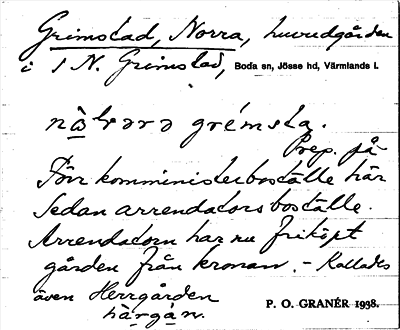 Grimstad, Norra, huvudgården
i 1 N. Grimstad, Boda sn, Jösse hd, Värmlands l.
grémsta.
Prep. på
Förr komministerboställe här
Sedan arrendatorsboställe.
Arrendatorn har nu friköpt
gården från kronan. – Kallades
även Herrgården
hä̀rgán.
P. O. GRANÉR 1938.